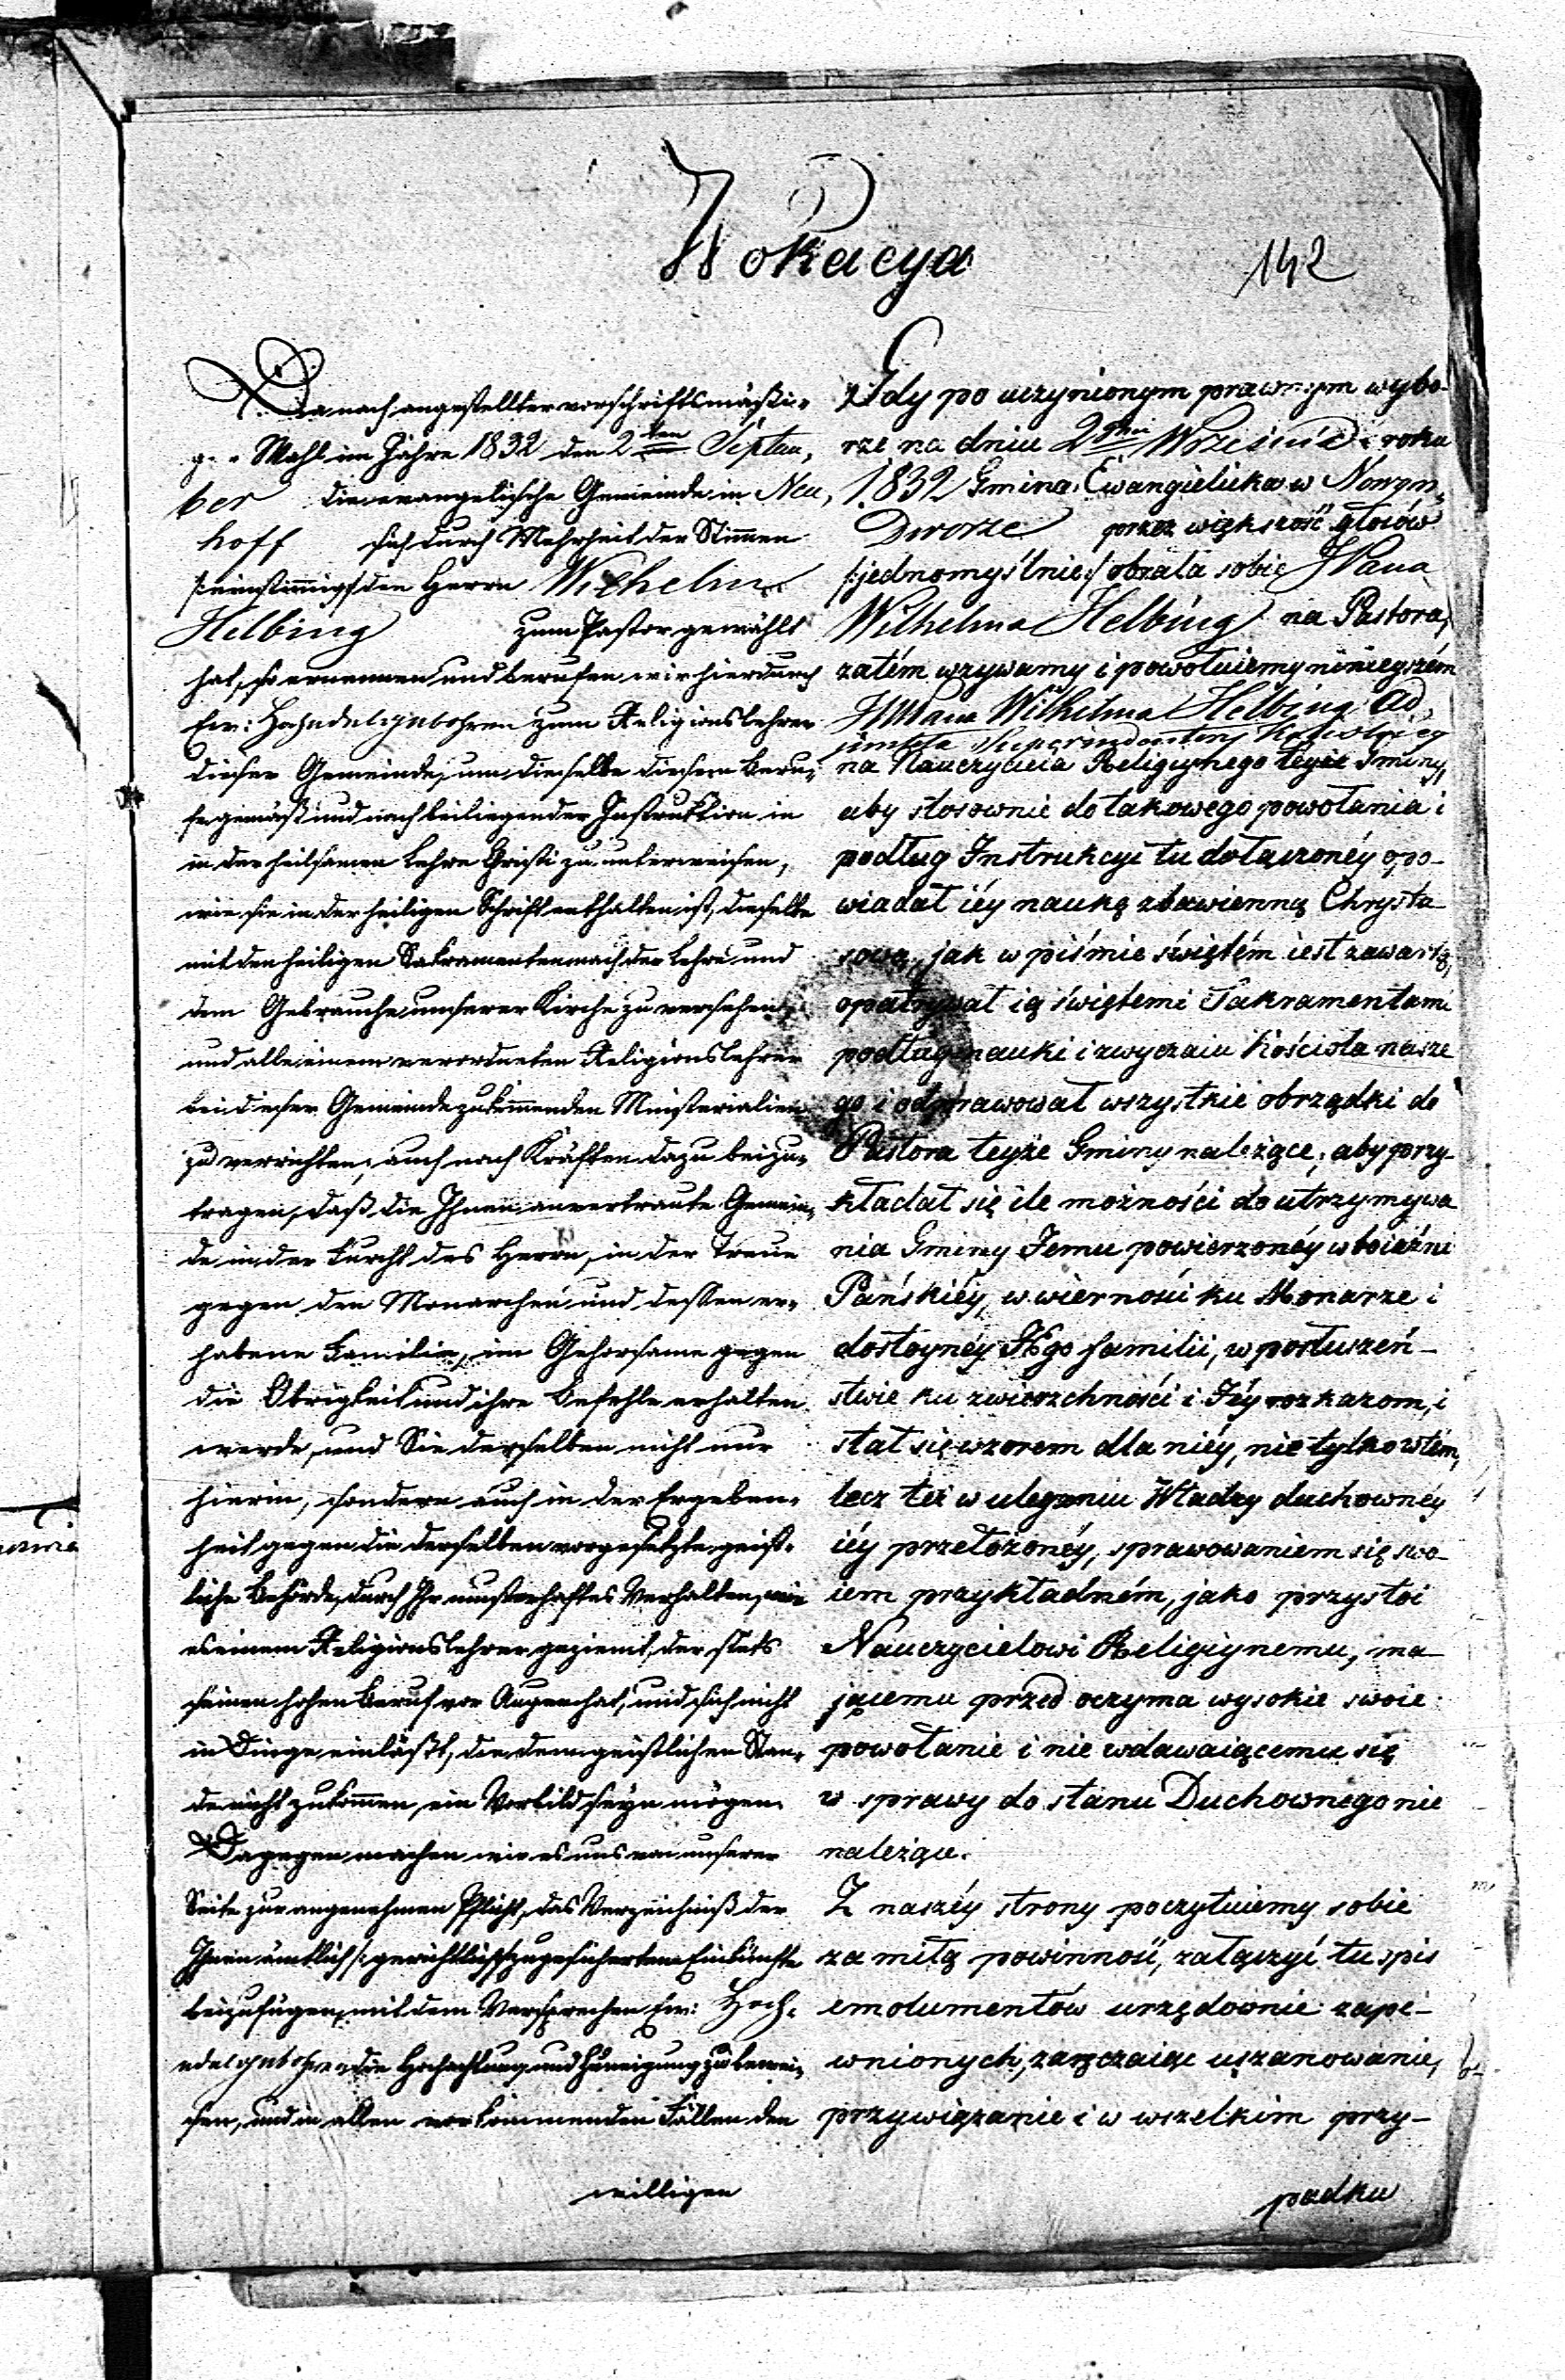 Wokacya
142
Da nach angestellter vorschriftsmäßi-
ger Wahl im Jahre 1832 den 2ten Septem,
ber die evangelische Gemeinde in Neu,
hoff sich durch Mehrheit der Stimmen
/:einstimmig:/ den Herrn Wilhelm
Helbing zum Pastor gewählt
hat, so ernennen und berufen wir hierdurch
Ew: Hochedelgebohren zum Religionslehrer
dieser Gemeinde, um dieselbe diesem Beru-
fe gemäß und nach beiliegender Instruktion in
in der heilsamen Lehre Christi zu unterweisen,
wie sie in der heiligen Schrift enthalten ist, dieselbe
mit den heiligen Sakramenten nach der Lehre und
dem Gebrauche unserer Kirche zu versehen,
und alle einem verordneten Religionslehrer
bei dieser Gemeinde zukommenden Ministerialien
zu verrichten, auch nach Kräften dazu beizu-
tragen, daß die Ihnen anvertraute Gemein-
de in der Furcht des Herrn, in der Treue
gegen den Monarchen und dessen er-
habene Familie, im Gehorsame gegen
die Obrigkeit und ihre Befehle erhalten
werde, und Sie derselben nicht nur
hierin, sondern auch in der Ergeben-
heit gegen die derselben vorgesetzte geist-
liche Behörde, durch Ihr musterhaftes Verhalten, wie
es einem Religionslehrer geziemt, der stets
seinen hohen Beruf vor Augen hat, und sich nicht
in Dinge einläßt, die dem geistlichen Stan-
de nicht zukommen, ein Vorbild seyn mögen.
Dagegen machen wir es uns von unserer
Seite zur angenehmen Pflicht, das Verzeichniß der
Ihnen amtlich /:gerichtlich:/ zugesicherten Einkünfte
beizufügen, mit dem Versprechen Ew: Hoch-
edelgebohren die Hochachtung und Zuneigung zu bewei-
sen, und in allen vorkommenden Fällen den
willigen
Gdy po uczynionym prawnym wybo-
rze na dniu 2gim Września roku
1832 Gmina Ewangielicka w Nowym
Dworze przez większość głosów
/:jednomyślnie:/ obrała sobie JPana
Wilhelma Helbing na Pastora,
zatém wzywamy i powołuiemy ninieyszém
JMPana Wilhelma Helbing Ad,
junkta Superindentenj Kaliskiéy
na Nauczyciela Religiynego teyże Gminy,
aby stosownie do takowego powołania i
podług Instrukcyi tu dołączonéy opo-
wiadał iéy naukę zbawienną Chrystu-
sową, jak w piśmie świętém iest zawartą,
opatrywał ią świętemi Sakramentami
podług nauki i zwyczaiu Kościoła nasze
go i odprawował wszystkie obrządki do
Pastora teyże Gminy należące; aby przy-
kładał się ile możności do utrzymywa
nia Gminy Jemu powierzonéy w boiaźni
Pańskiéy, w wierności ku Monarze i
dostoynéy JEgo familii, w posłuszeń-
stwie ku zwierzchności i Jéy rozkazom, i
stał się wzorem dla niéy, nie tylko w tém,
lecz też w uleganiu Władzy duchownéy
iéy przełożonéy, sprawowaniem się swo-
iem przykładném, jako przystoi
Nauczycielowi Religiynemu, ma-
jącemu przed oczyma wysokie swoie
powołanie i nie wdawaiącemu się
w sprawy do stanu Duchownego nie
należące.
Z naszéy strony poczytuiemy sobie
za miłą powinność, załączyć tu spis
emolumentów urzędownie zape-
wnionych, zaręczaiąc uszanowanie,
przywiązanie i w wszelkim przy-
padku